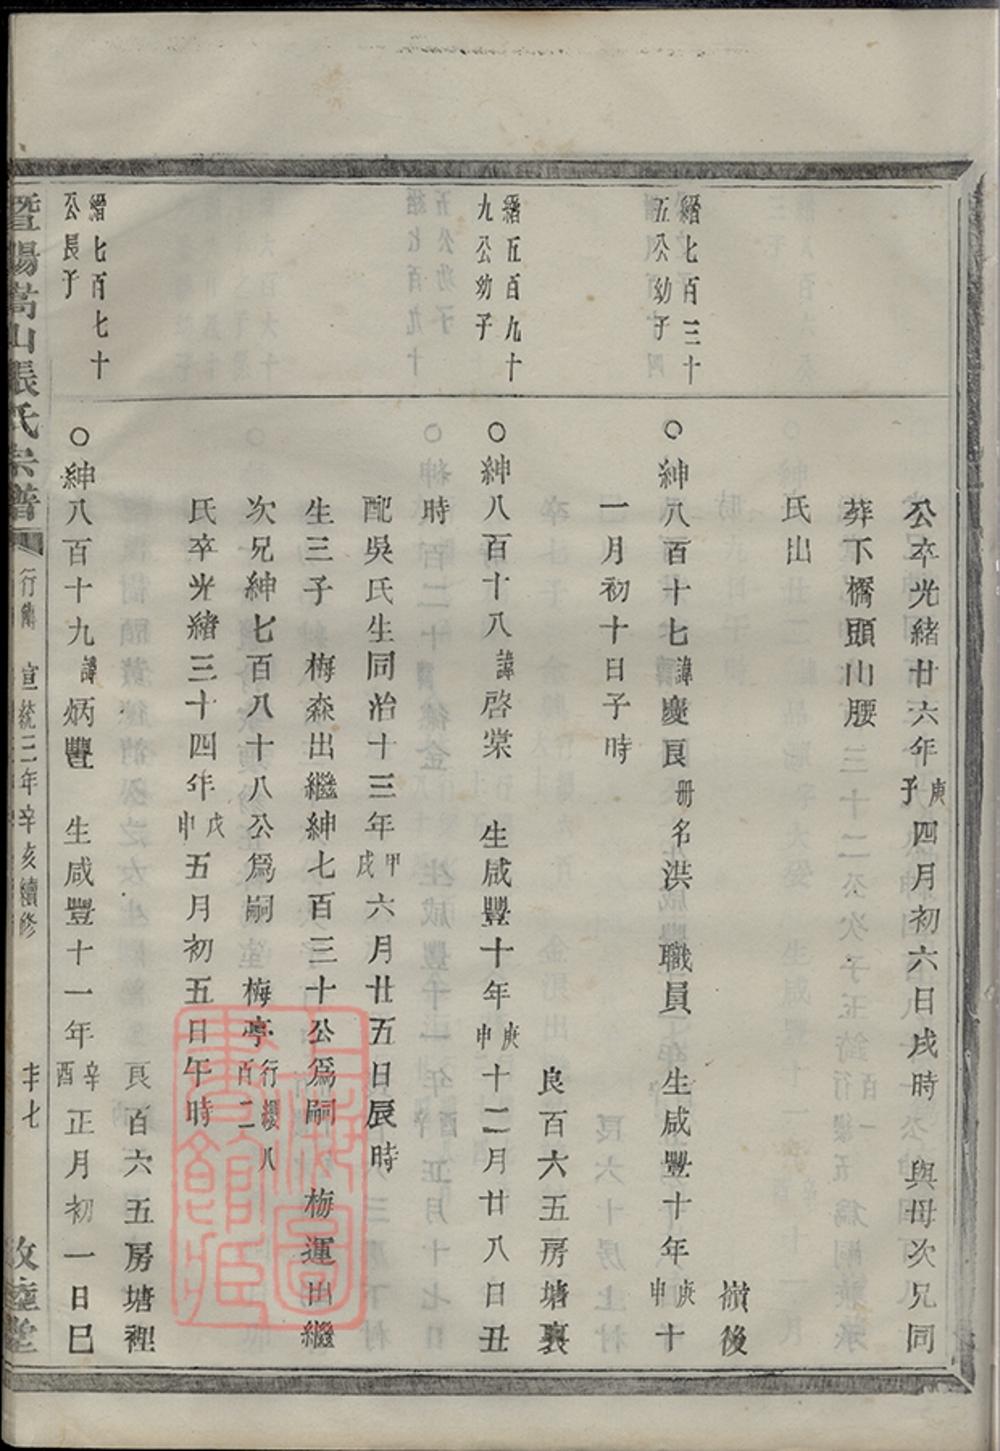 公卒光緒廿六年庚子四月初六日戌時 與母次兄同
葬下橋頭山腰
氏出
嶺後
縉七百三十
五公幼子
○紳八百十七諱慶良冊名洪 職員 生咸豐十年庚申十
一月初十日子時
良百六五房塘裏
縉五百九十
九公幼子
○紳八百十八諱啓棠 生咸豐十年庚申十二月廿八日丑
時
配吳氏生同治十三年甲戌六月廿五日辰時
生三子 梅森出繼紳七百三十公爲嗣 梅運出繼
次兄紳七百八十八公爲嗣 梅亭行纓八百二
氏卒光緒三十四年戊申五月初五日午時
良百六五房塘裡
縉七百七十
公長子
○紳八百十九諱炳豐 生咸豐十一年辛酉正月初一日巳
暨陽嵩山張氏宗譜 行傳 宣統三年辛亥續修 敦睦堂
上海圖書館藏